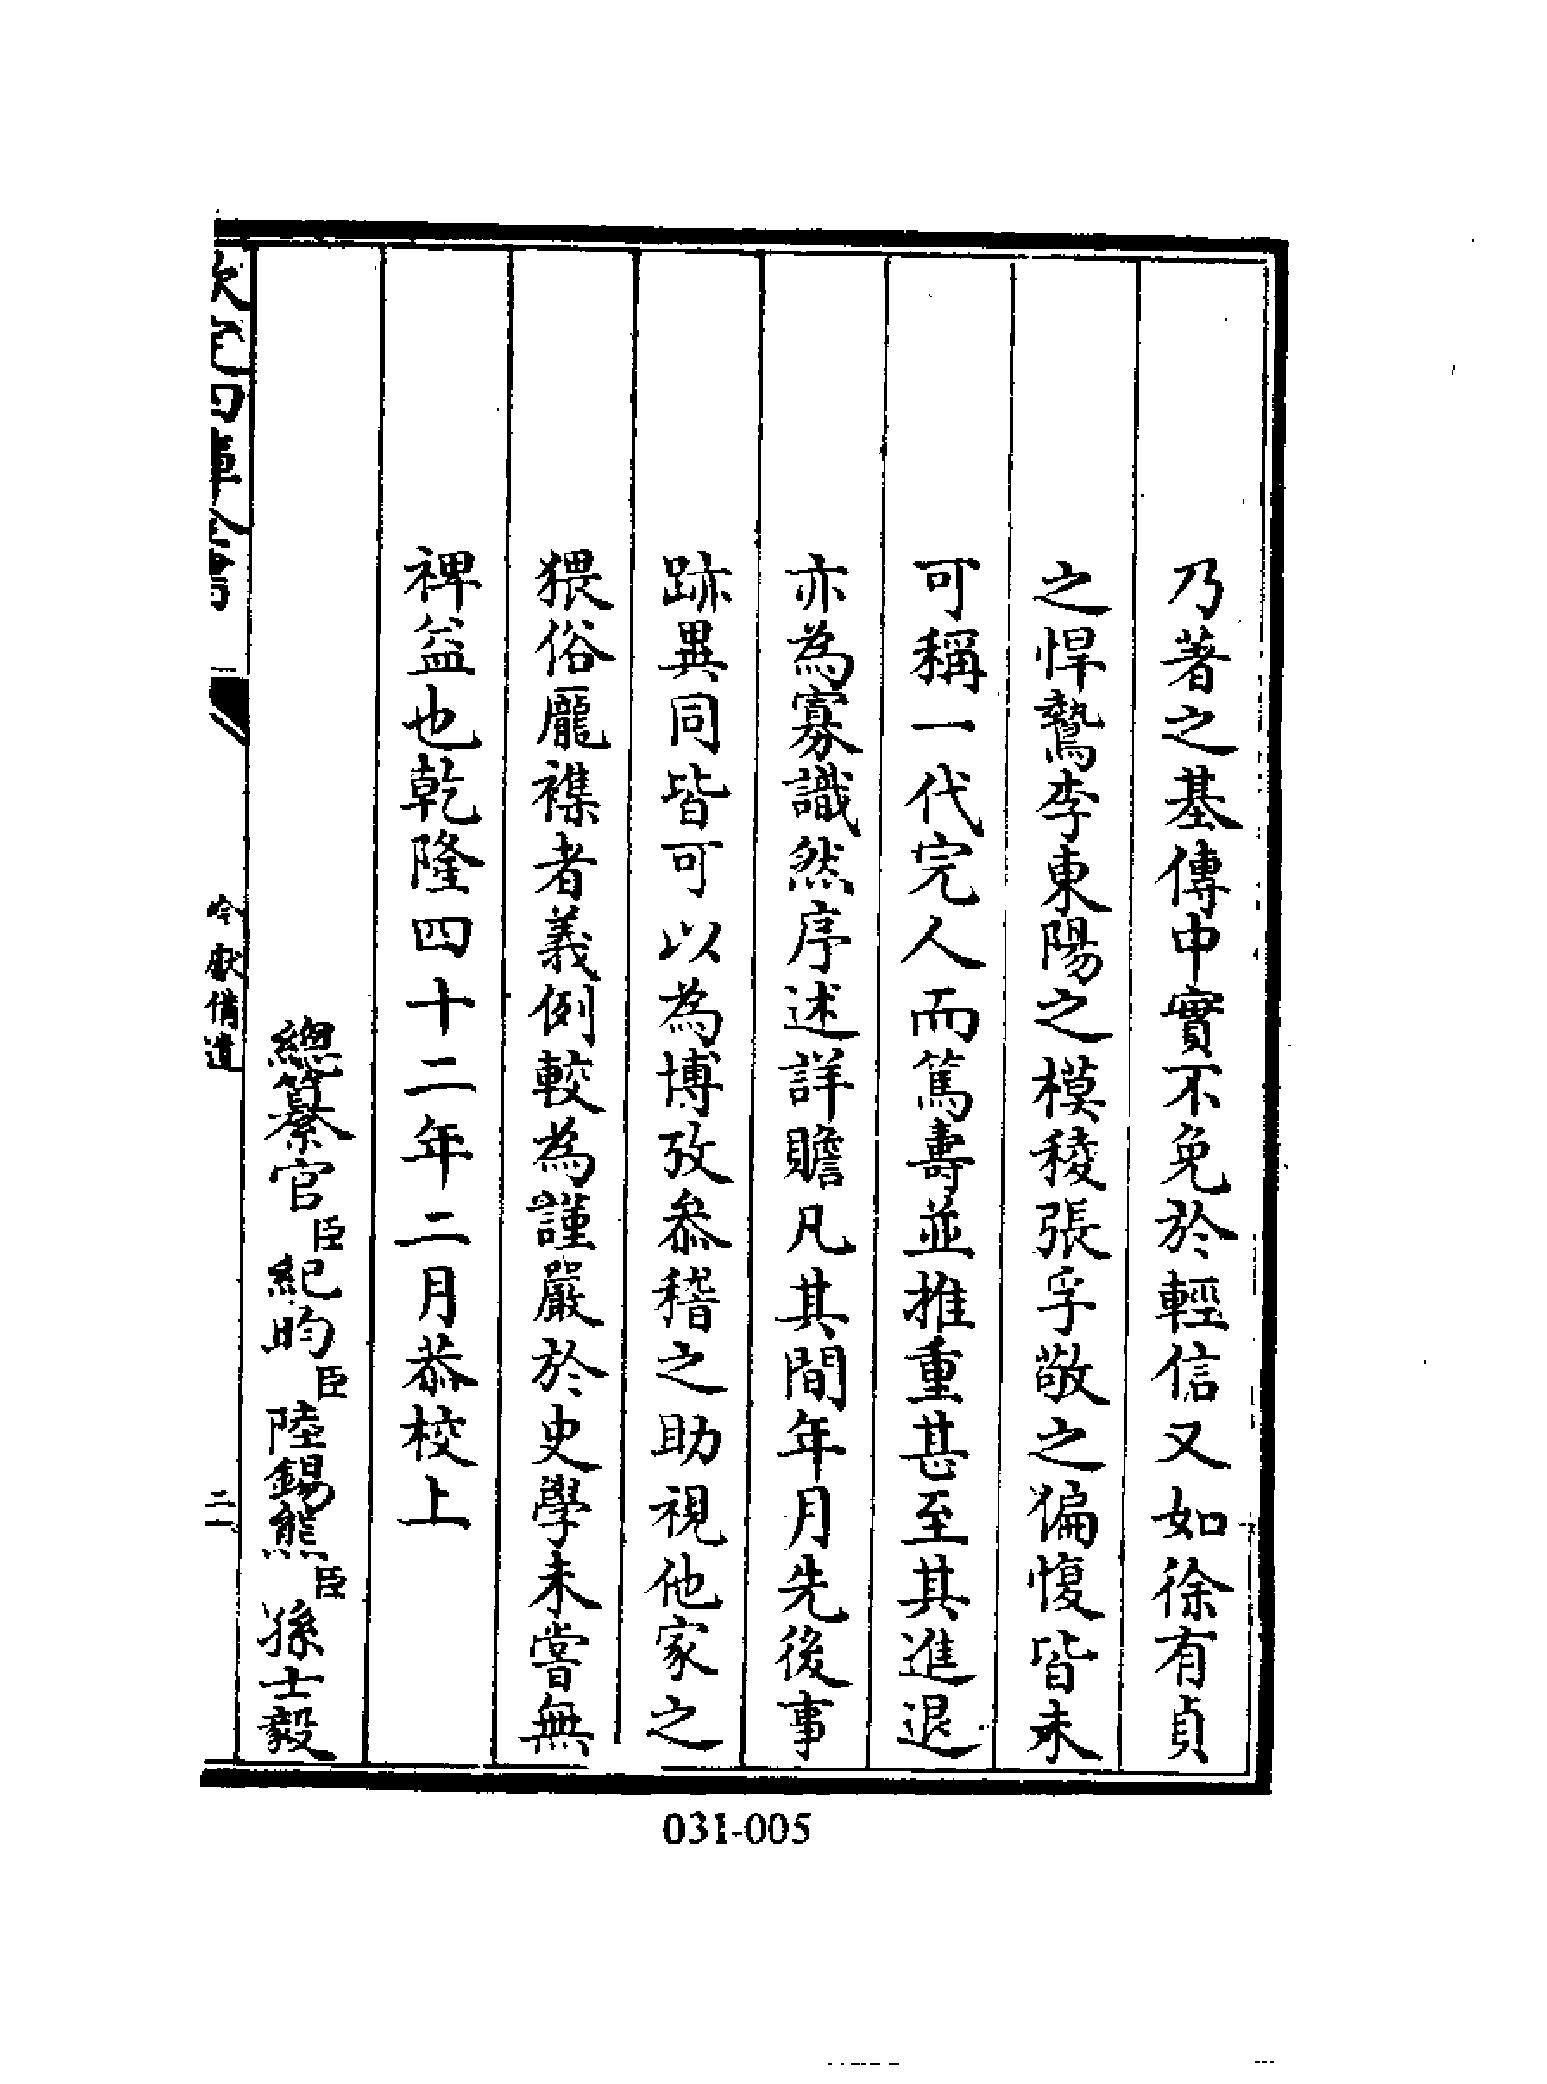 乃著之基傳中實不免於輕信又如徐有貞
之悍鷙李東陽之模稜張孚敬之猵愎皆未
可稱一代完人而篤夀並推重甚至其進退
亦為寡識然序述詳贍凡其間年月先後事
跡異同皆可以為博攷叅稽之助視他家之
猥俗龎襍者義例較為謹嚴於史學未嘗無
裨益也乾隆四十二年二月恭校上
總纂官臣紀昀臣陸錫熊臣孫士毅
欽定四庫全書
今獻備遺
二
031-005